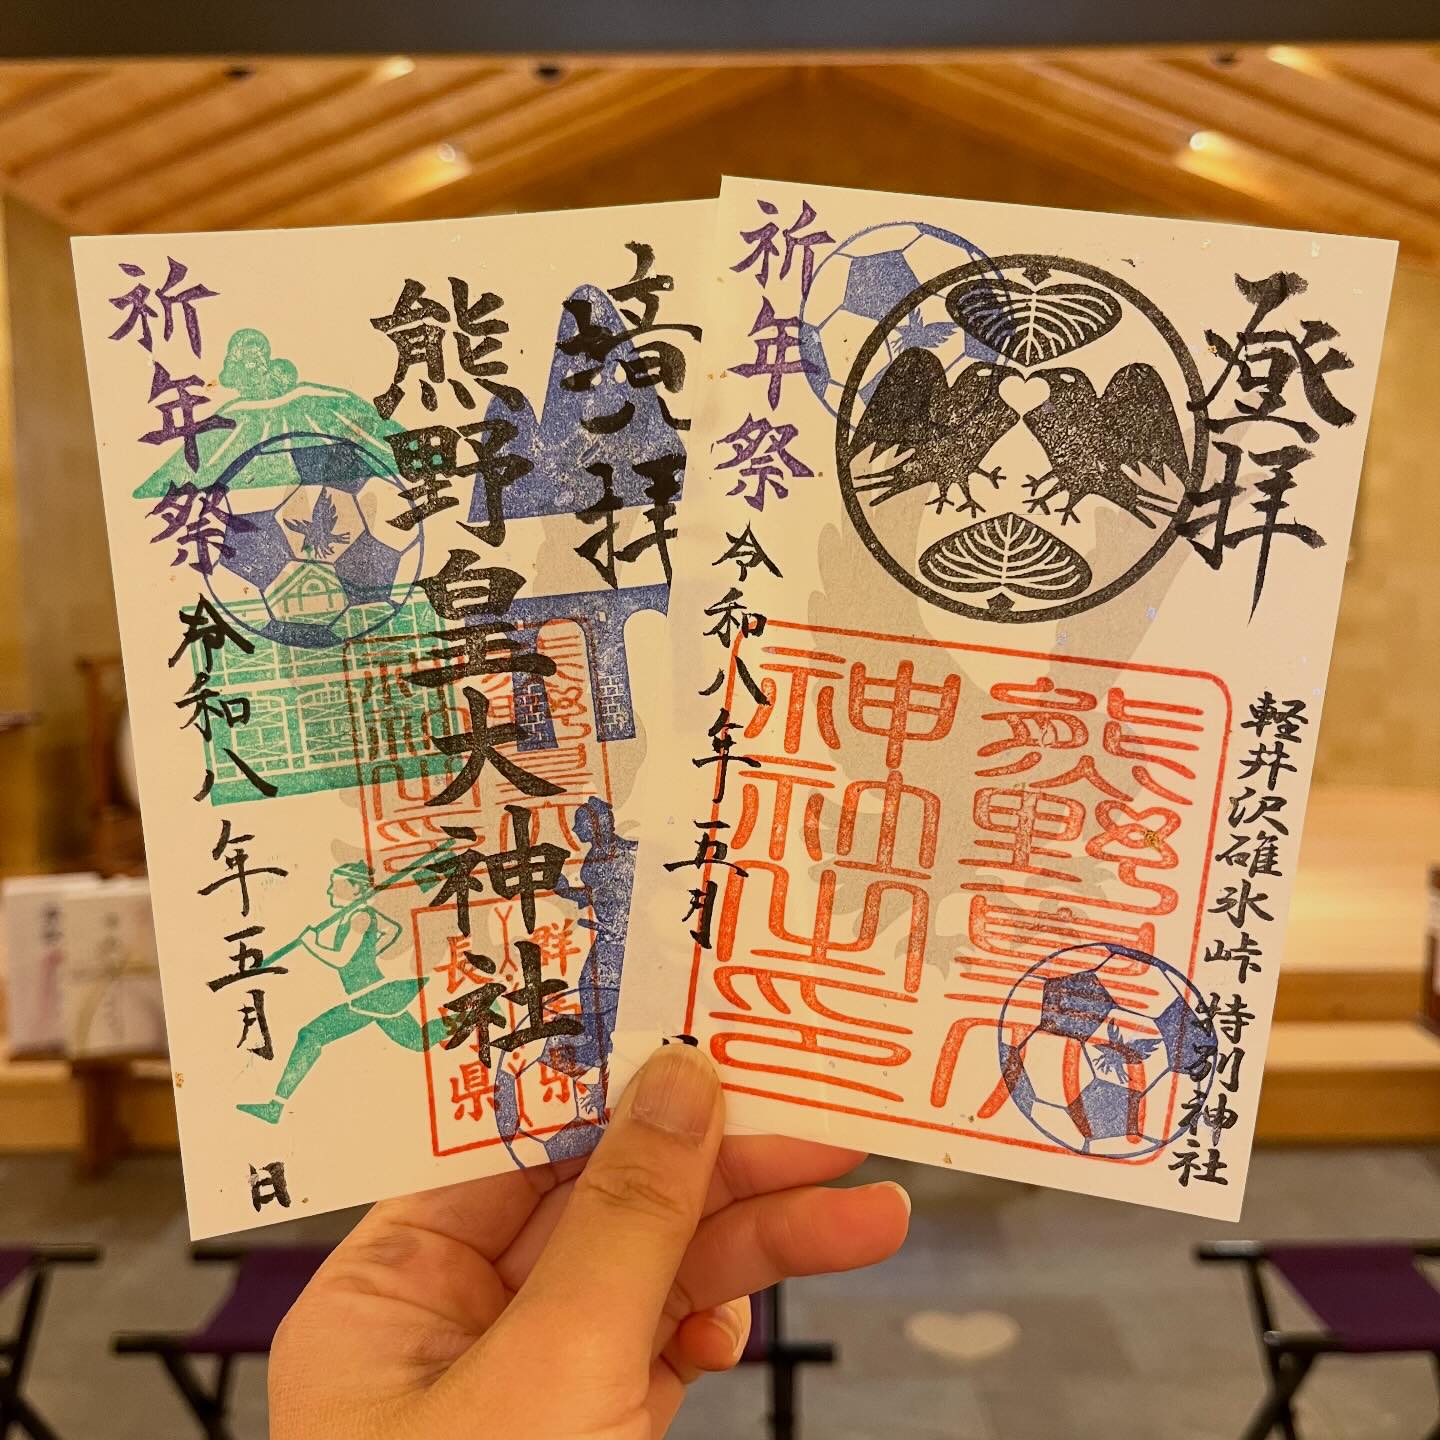 熊野皇大神社
祈年祭
令和八年五月
日
群馬県
長野県
登拝
軽井沢碓氷峠特別神社
祈年祭
令和八年五月
熊野皇大
神社之印